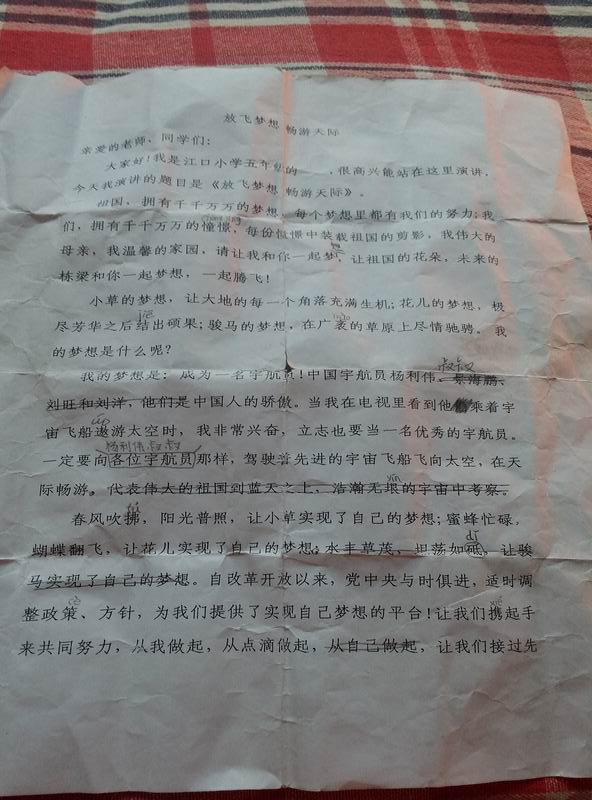 放飞梦想 畅游天际
亲爱的老师、同学们：
大家好！我是江口小学五年级的 ，很高兴能站在这里演讲，
今天我演讲的题目是《放飞梦想 畅游天际》。
祖国，拥有千千万万的梦想，每个梦想里都有我们的努力；我
们，拥有千千万万的憧憬，每份憧憬中装载祖国的剪影，我伟大的
母亲，我温馨的家园，请让我和你一起梦，让祖国的花朵，未来的
栋梁和你一起梦想，一起腾飞！
小草的梦想，让大地的每一个角落充满生机；花儿的梦想，极
jiē
尽芳华之后结出硕果；骏马的梦想，在广袤的草原上尽情驰骋。我
的梦想是什么呢？
叔叔
我的梦想是：成为一名宇航员！中国宇航员杨利伟、景海鹏、
刘旺和刘洋，他们是中国人的骄傲。当我在电视里看到他 乘着宇
宙飞船遨游太空时，我非常兴奋，立志也要当一名优秀的宇航员。
杨利伟叔叔
一定要向各位宇航员那样，驾驶着先进的宇宙飞船飞向太空，在天
际畅游。代表伟大的祖国到蓝天之上，浩瀚无垠的宇宙中考察。
春风吹拂，阳光普照，让小草实现了自己的梦想；蜜蜂忙碌，
dǐ
蝴蝶翻飞，让花儿实现了自己的梦想；水丰草茂，坦荡如砥，让骏
马实现了自己的梦想。自改革开放以来，党中央与时俱进，适时调
整政策、方针，为我们提供了实现自己梦想的平台！让我们携起手
来共同努力，从我做起，从点滴做起，从自己做起，让我们接过先